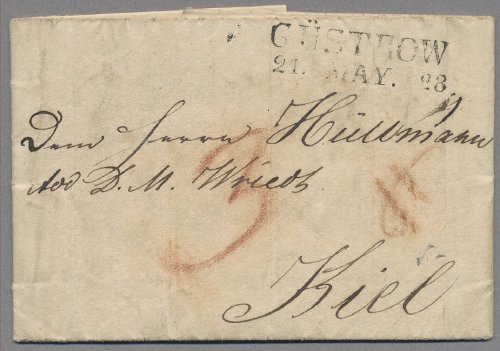 GÜSTROW
21. MAY. 23
Dem Herrn Hüllmann
D. M. Wriedt
3 8
Kiel